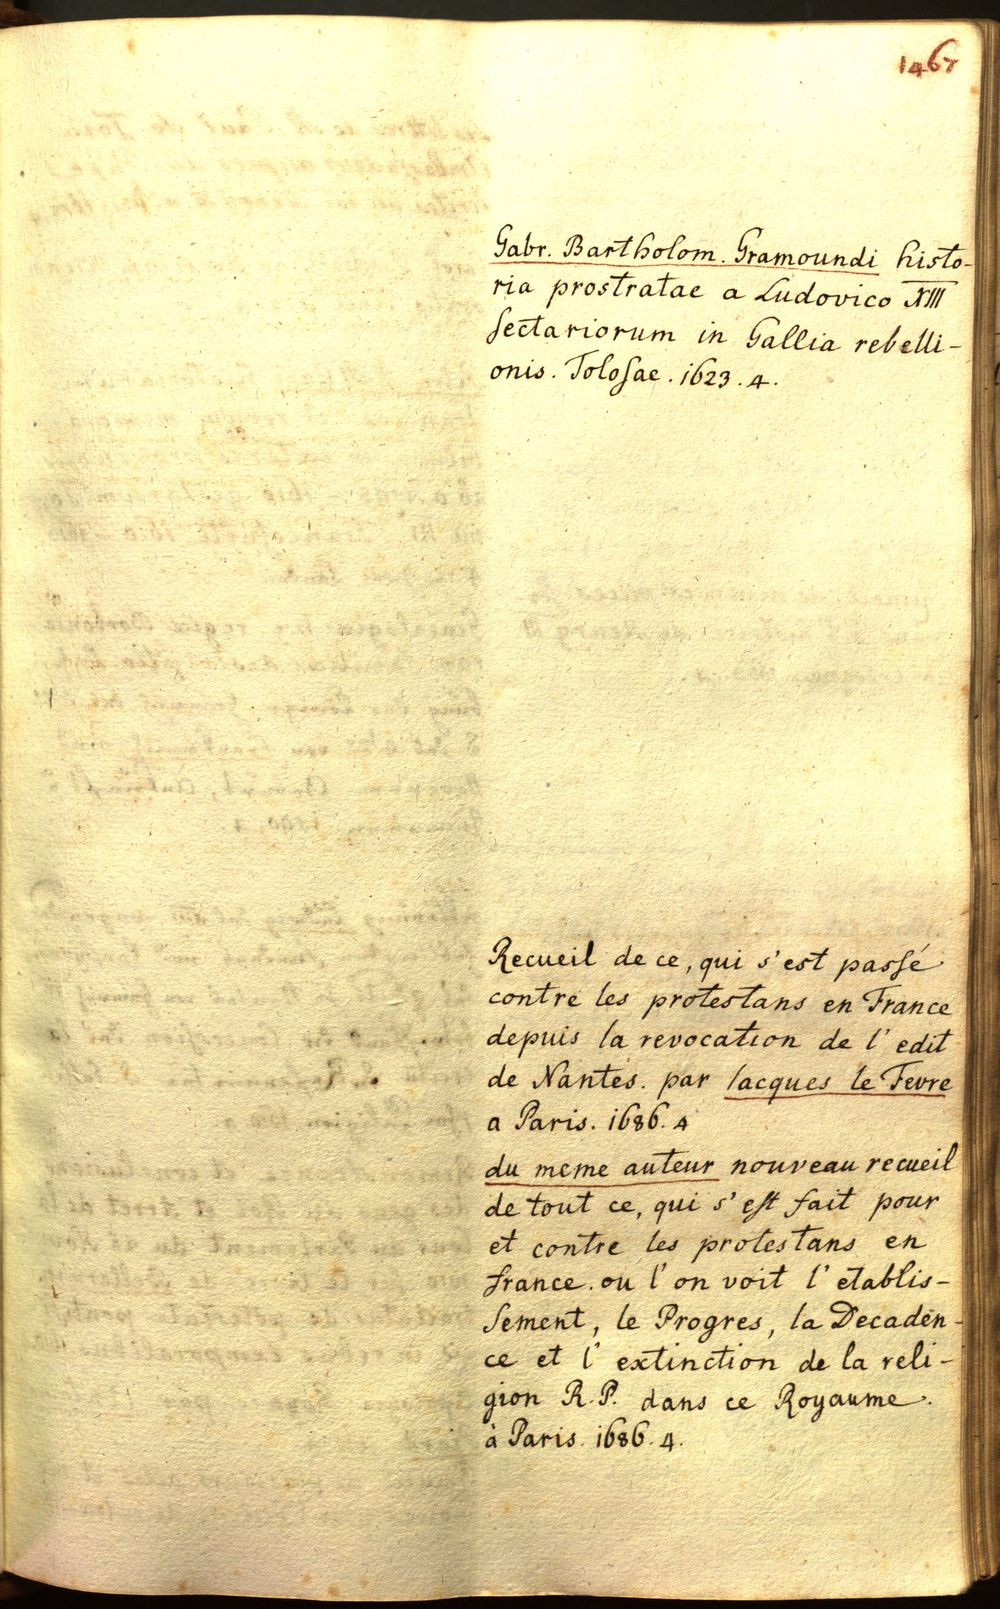 1467
Gabr. Bartholom. Gramoundi histo-
ria prostratae a Ludovico XIII
sectariorum in Gallia rebelli-
onis. Tolosae. 1623. 4.
Recueil de ce, qui s'est passé
contre les protestans en France
depuis la revocation de l'edit
de Nantes. par Iacques le Fevre
a Paris. 1686. 4
du meme auteur nouveau recueil
de tout ce, qui s'est fait pour
et contre les protestans en
france. ou l'on voit l'etablis-
sement, le Progres, la Decaden-
ce et l'extinction de la reli-
gion R. P. dans ce Royaume.
à Paris. 1686. 4.